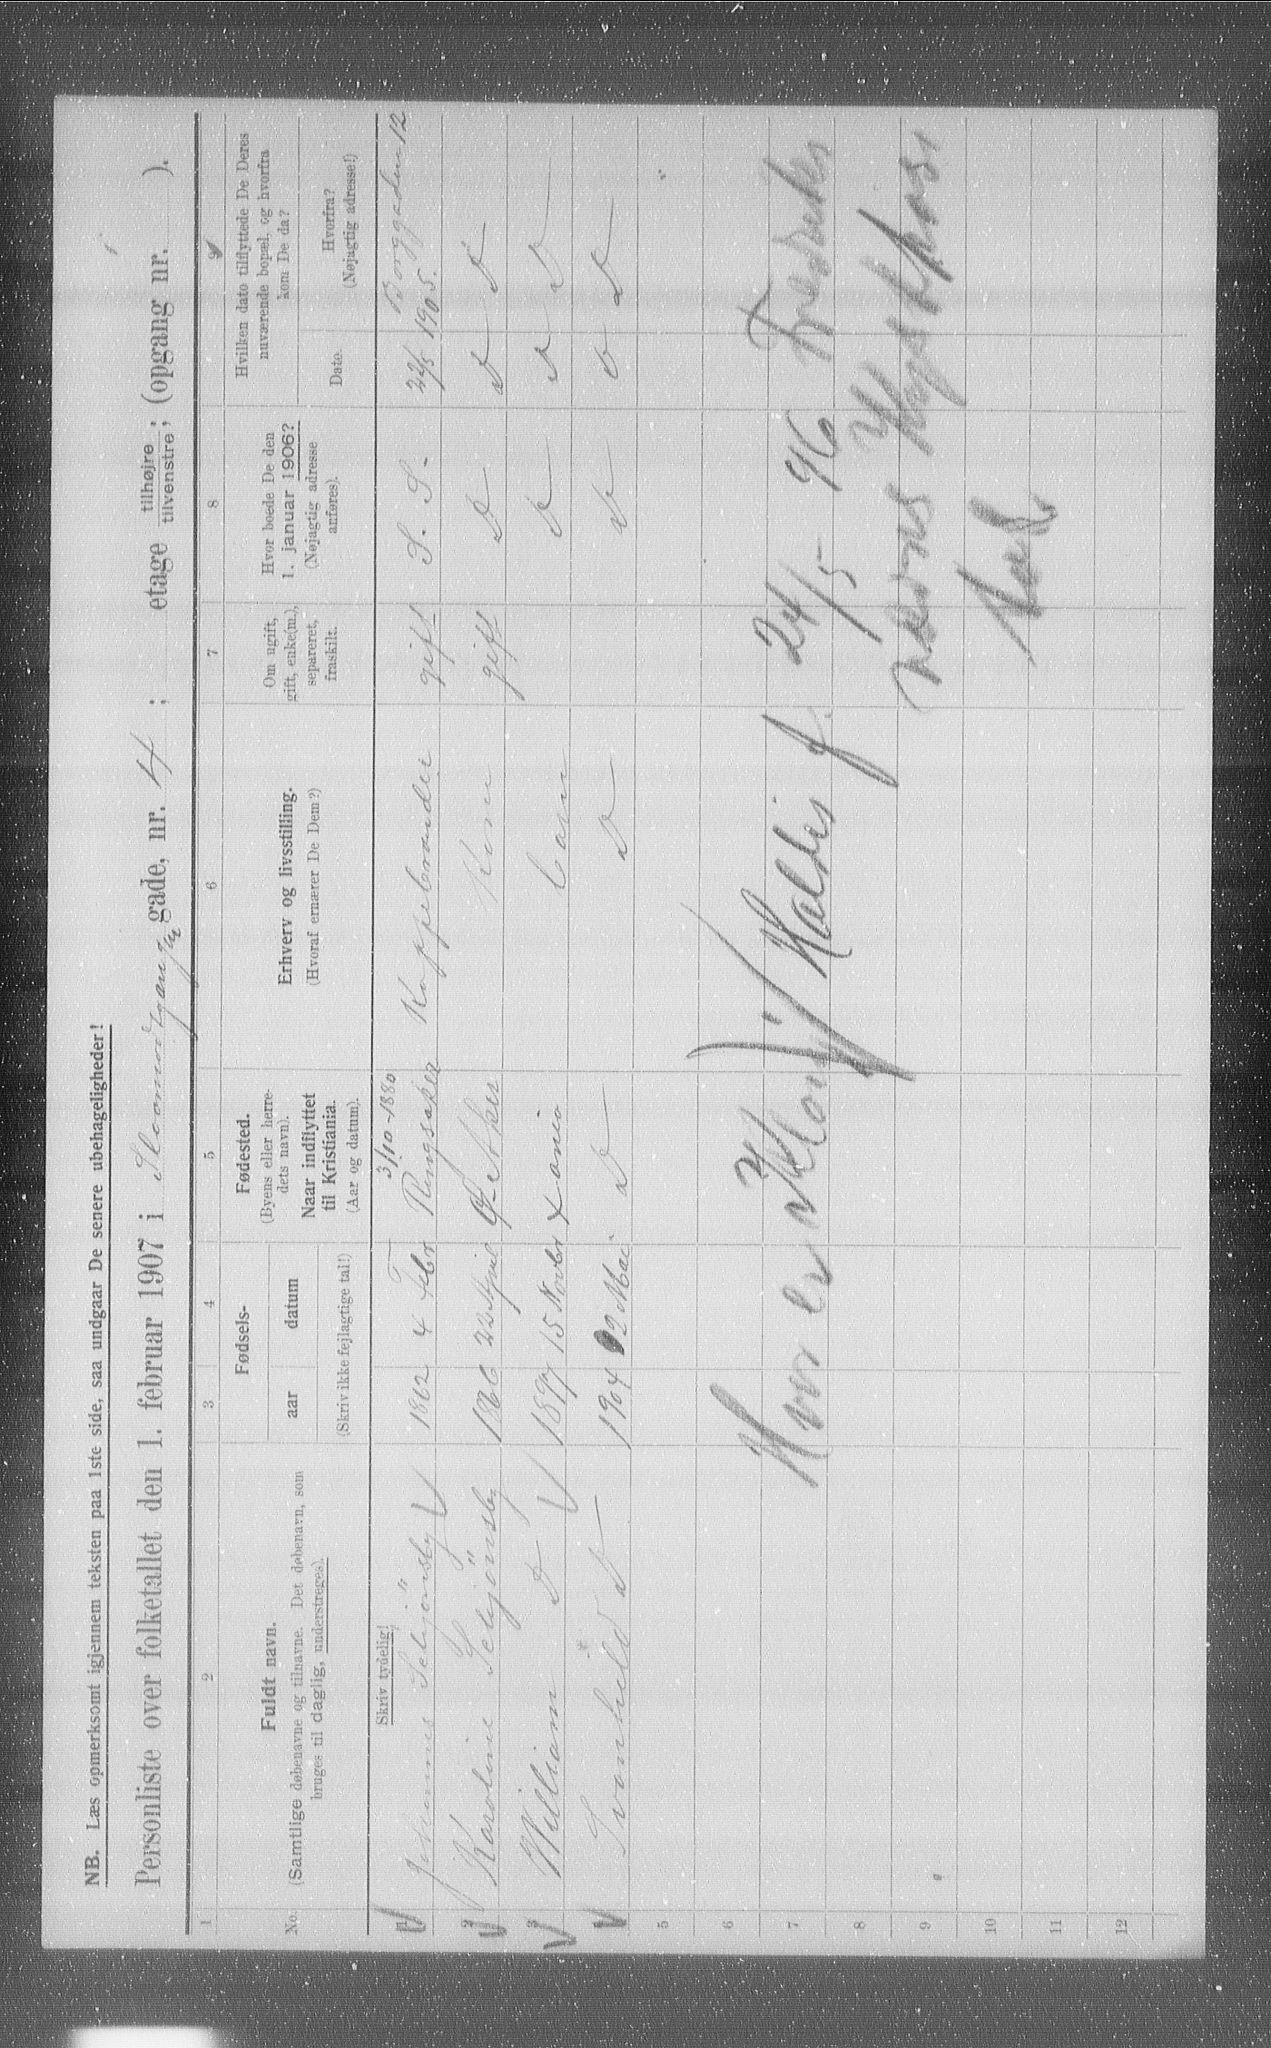 NB. Læs opmerksomt igjennem teksten paa 1ste side, saa undgaar De senere ubehageligheder!
Personliste over folketallet den 1. februar 1907 i gade, nr. 4 ; etage tilhøjre, tilvenstre, (opgang nr. ).
1 2 3 4 5 6 7 8 9
No.
Fuldt navn.
(Samtlige døbenavne og tilnavne. Det døbenavn, som
bruges til daglig, understreges).
Fødsels-
aar datum
(Skriv ikke fejlagtige tal!)
Fødested.
(Byens eller herre-
dets navn).
Naar indflyttet
til Kristiania.
(Aar og datum).
Erhverv og livsstilling.
(Hvoraf ernærer De Dem?)
Om ugift,
gift, enke(m.),
separeret,
fraskilt.
Hvor boede De den
1. januar 1906?
(Nøjagtig adresse
anføres).
Hvilken dato tilflyttede De Deres
nuværende bopæl, og hvorfra
kom De da?
Dato.
Hvorfra?
(Nøjagtig adresse!)
Skriv tydelig!
3/10-1880
1 Johannes 1862 4 febr Ringsaker gift S. S. 22/5 1905. Borggaden 12
2 Karoline 1866 22 April Kone gift D D D
3 William D 1897 15 Novbr Xania barn D D D
4 Svanhild D 1904 12 Mai D D D D D
5
6
7 Hvor er Halldis f. 24/5 96
8
9
10
11
12